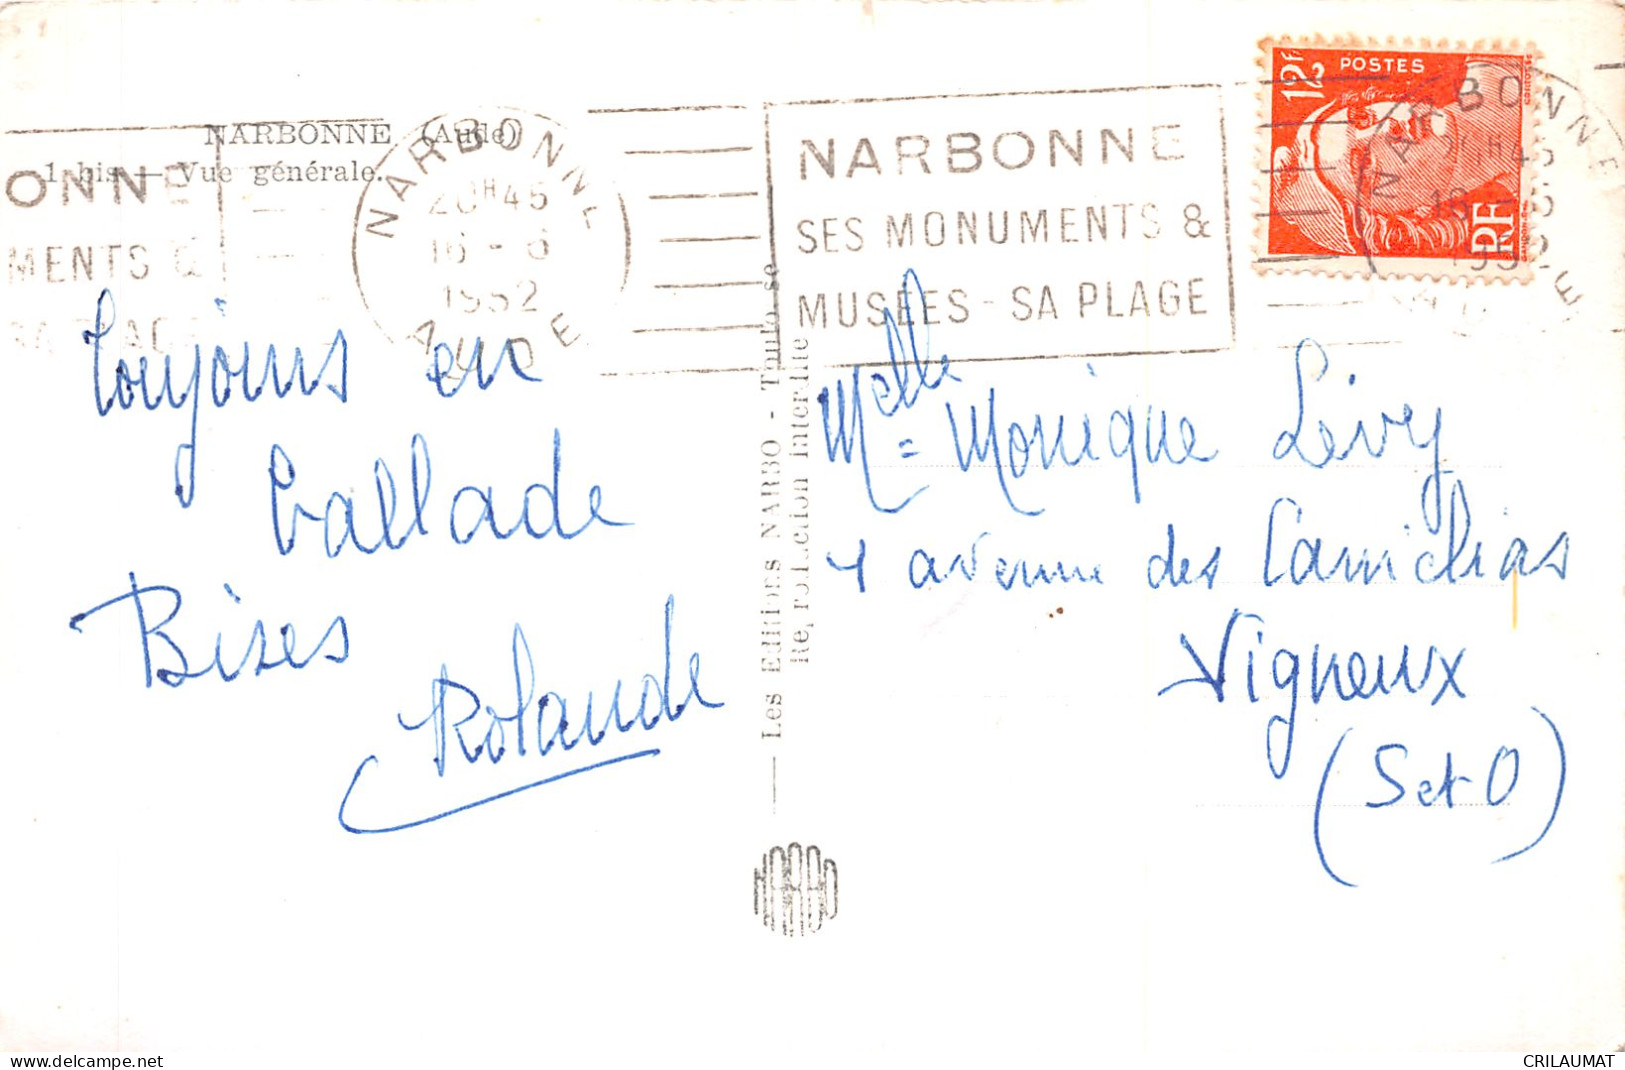 NARBONNE (Aude)
1 bis — Vue générale.
ONNE
MENTS &
SA PLAGE
NARBONNE
20H45
16 - 6
1952
AUDE
NARBONNE
SES MONUMENTS &
MUSÉES - SA PLAGE
12F POSTES
RF
NARBONNE
16 - 6
1952
Toujours en
ballade
Bises
Rolande
Les Editions NARBO - Toulouse
Reproduction interdite
NARBO
Melle Monique Lévy
4 avenue des Camélias
Vigneux
(S et O)
delcampe.net
CRILAUMAT